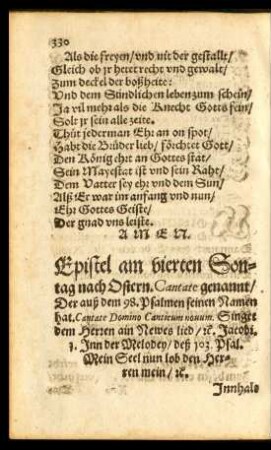 330
Als die freyen/vnd nit der gestallt/
Gleich ob jr hetet recht vnd gewalt/
Zum deckel der boßheite:
Vnd dem Sündlichen leben zum schein/
Ja vil meht als die Knecht Gotts sein/
Solt jr sein alle zeite.
Thüt jederman Ehr an on spot/
Habt die Brüder lieb/ förchtet Gott/
Den König ehrt an Gottes stat/
Sein Mayestat ist vnd sein Raht/
Dem Vatter sey ehr vnd dem Sun/
Alß Er war im anfang vnd nun/
Ehr Gottes Geiste/
Der gnad vns leiste.
A M E N.
Epistel am vierten Son-
tag nach Ostern. Cantate genannt/
Der auß dem 98. Psalmen seinen Namen
hat. Cantate Domino Canticum nouum. Singet
dem Herren ain Newes lied/ ꝛc. Jacobi.
1. Inn der Melodey/ deß 103. Psal.
Mein Seel nun lob den Her-
ren mein/ ꝛc.
Innhalt